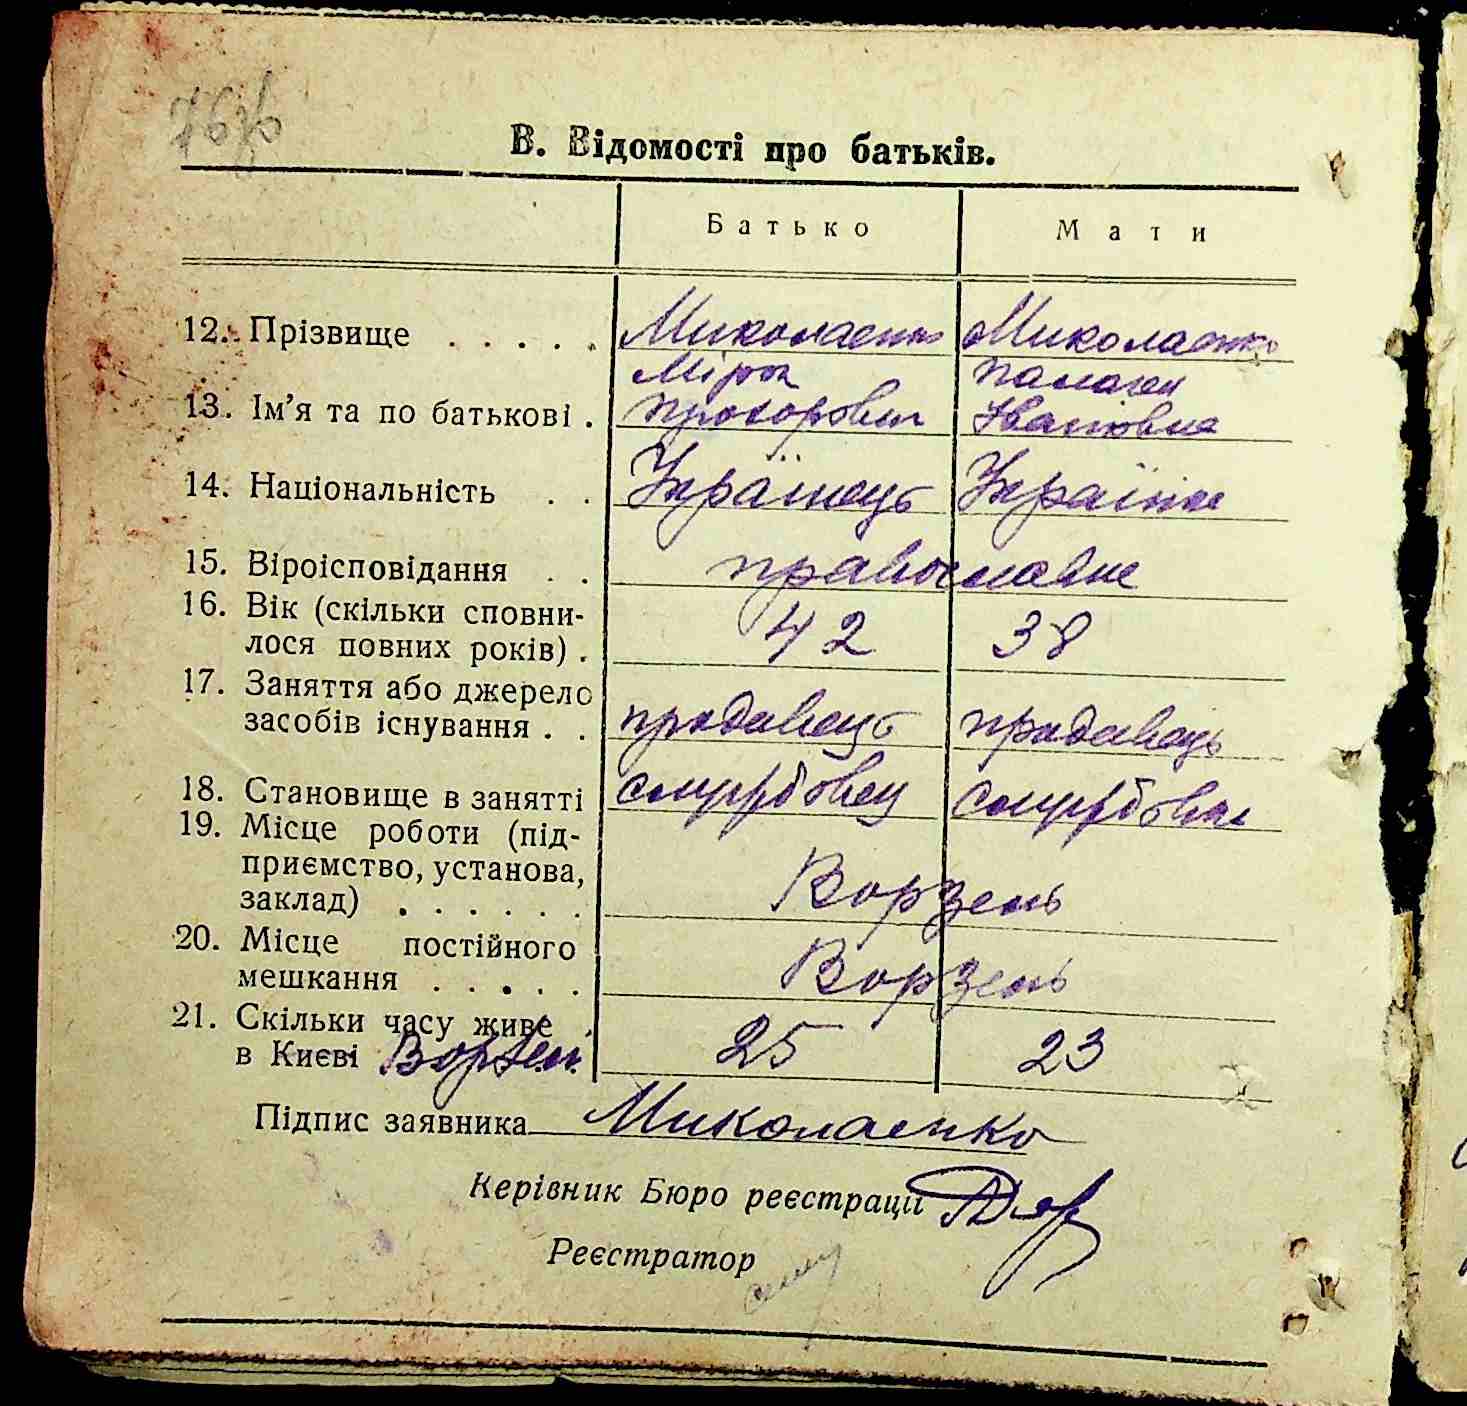 В. Відомості про батьків.
Батько Мати
12. Прізвище . . . . . Миколаенко Миколаенко
Мірон
13. Ім’я та по батькові . Прохорович Івановна
14. Національність . . Українець Українка
15. Віроісповідання . . православне
16. Вік (скільки сповни-
лося повних років) . 42 38
17. Заняття або джерело
засобів існування . . продавець продавець
18. Становище в занятті
19. Місце роботи (під-
приємство, установа,
заклад) . . . . . . Ворзель
20. Місце постійного
мешкання . . . . . Ворзель
21. Скільки часу живе .
в Києві Ворзел. 25 23
Підпис заявника Миколаенко
Керівник Бюро реєстрації
Реєстратор